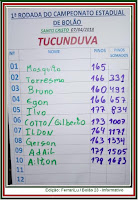 1ª RODADA DO CAMPEONATO ESTADUAL
DE BOLÃO
SANTO CRISTO 07/04/2018
TUCUNDUVA
01 Mosquito 165
02 Torresmo 166 331
03 Bruno 160 491
04 Egon 166 657
05 Ilvo 177 834
06 Cotto/Gilberto 173 1007
07 ILDON 164 1171
08 Gerson 163 1334
09 Adair 171 1505
10 Ailton 178 1683
Edição: FerrariLu / Bolão 23 - Informativo